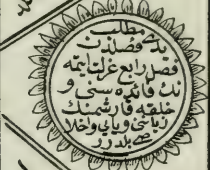 مطلب
یدی فصلدن
فصل رابع عزلت ایتمه
نك فائده سی و
خلقه قارشمنك
زیانی و یای و خلا
صی بلدرر